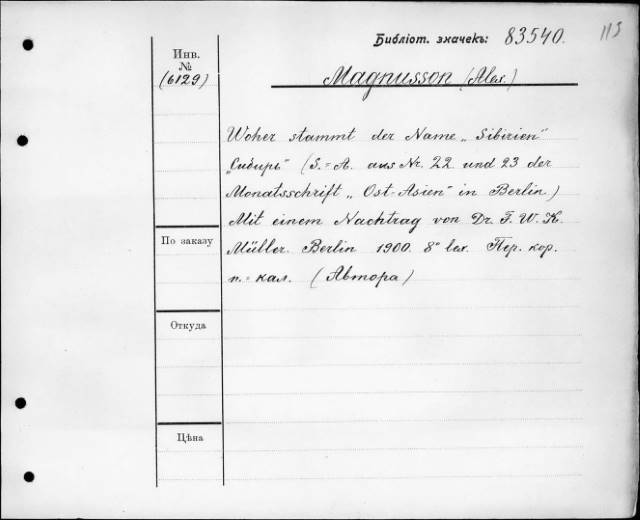 Библіот. значекъ: 83540. 113
Инв.
№
(6129)
Magnusson (Alex.)
Woher stammt der Name „Sibirien"
„Сибирь" (S.=A. aus Nr. 22 und 23 der
Monatsschrift „Ost-Asien" in Berlin)
Mit einem Nachtrag von Dr. F. W. K.
Müller. Berlin 1900. 8° lex. Пер. кор.
п.=кал. (Автора)
По заказу
Откуда
Цѣна